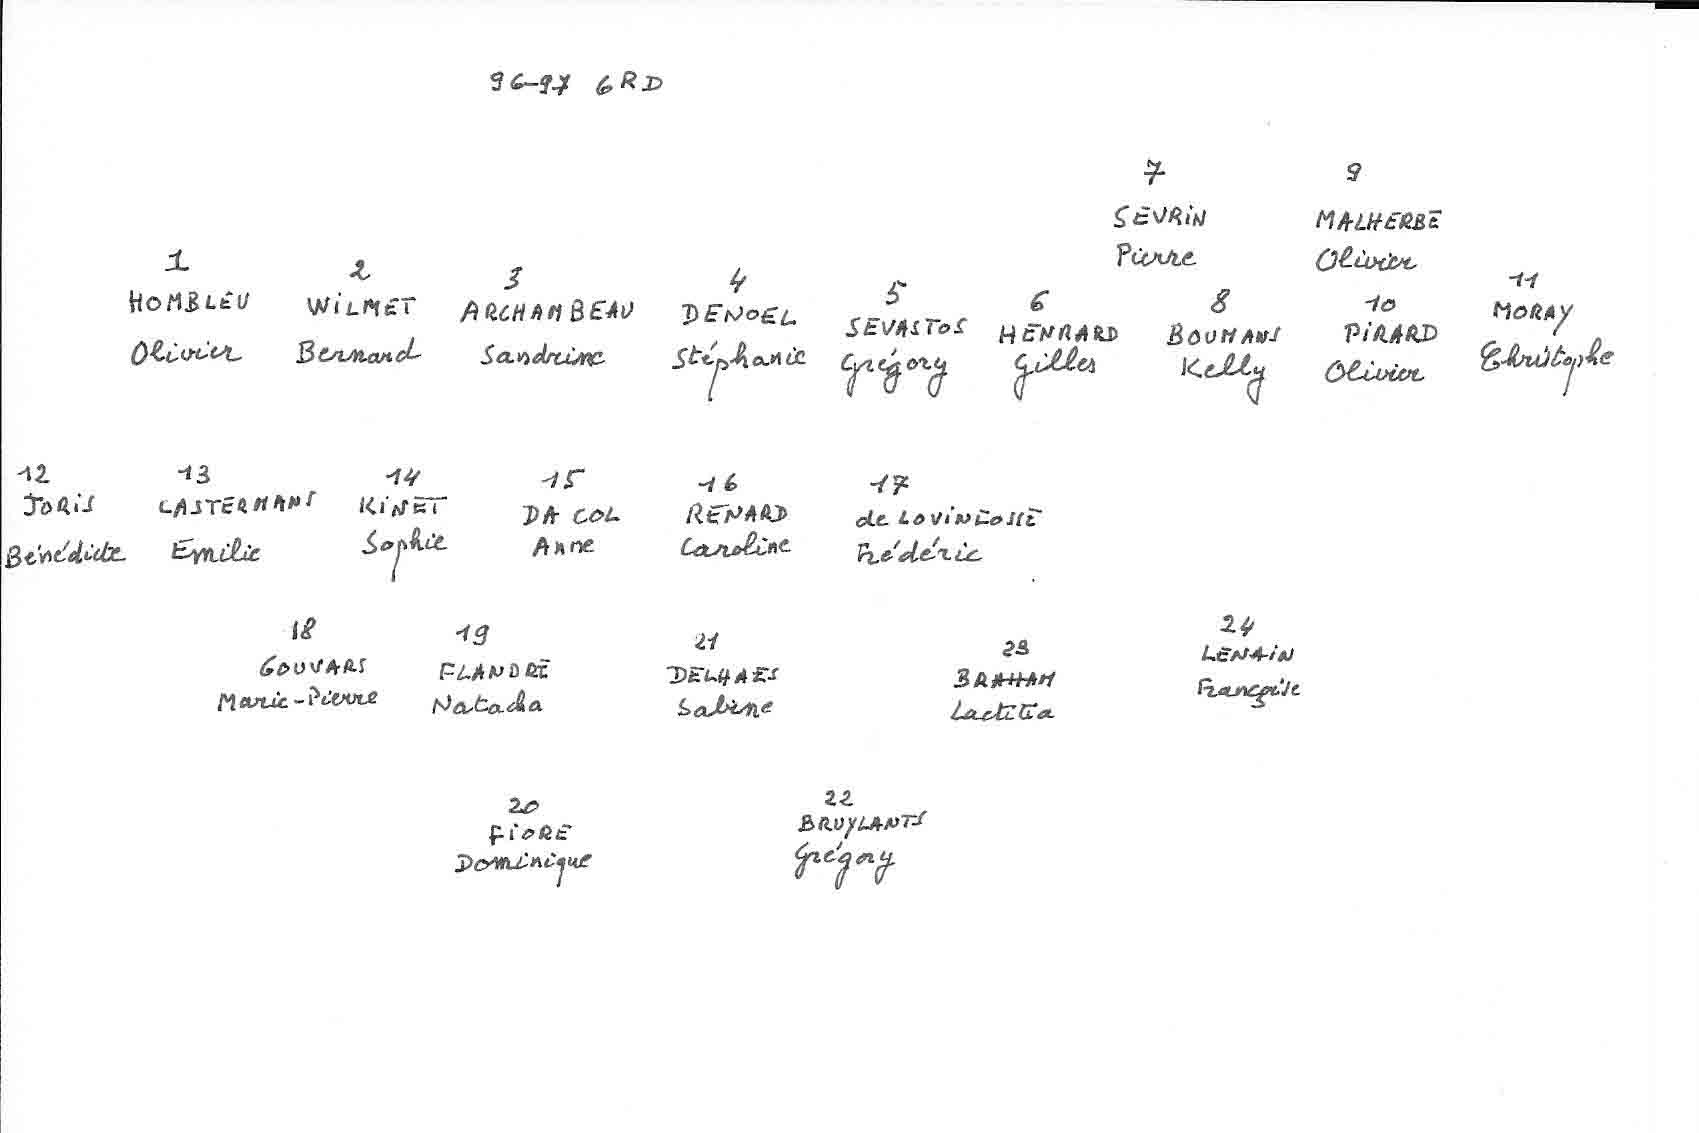 96-97 6RD
7 9
SEVRIN MALHERBE
Pierre Olivier
1 2 3 4 5 6 8 10 11
HOMBLEU WILMET ARCHAMBEAU DENOEL SEVASTOS HENRARD BOUMANS PIRARD MORAY
Olivier Bernard Sandrine Stéphanie Grégory Gilles Kelly Olivier Christophe
12 13 14 15 16 17
JORIS CASTERMANS KINET DA COL RENARD de LOVINFOSSE
Bénédicte Emilie Sophie Anne Caroline Frédéric
18 19 21 23 24
GOUVARS FLANDRE DELHAES BRAHAM LENAIN
Marie-Pierre Natacha Sabine Laetitia Françoise
20 22
FIORE BRUYLANTS
Dominique Grégory